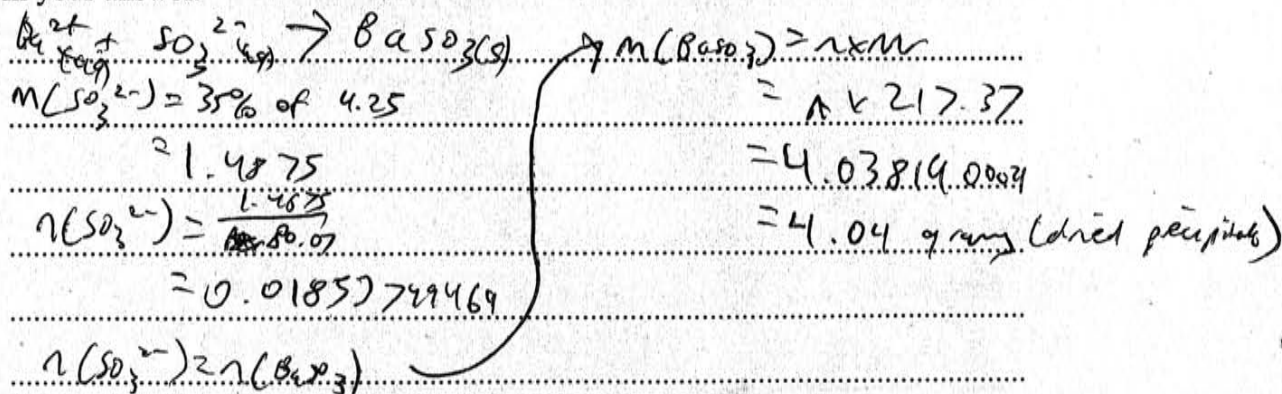 Ba²⁺(aq) + SO₃²⁻(aq) → BaSO₃(s)
m(SO₃²⁻) = 35% of 4.25
= 1.4875
n(SO₃²⁻) = 1.4875 / 80.07
= 0.01857749469
n(SO₃²⁻) = n(BaSO₃)
m(BaSO₃) = n×M
= n × 217.37
= 4.03819.0004
= 4.04 grams (dried precipitate)